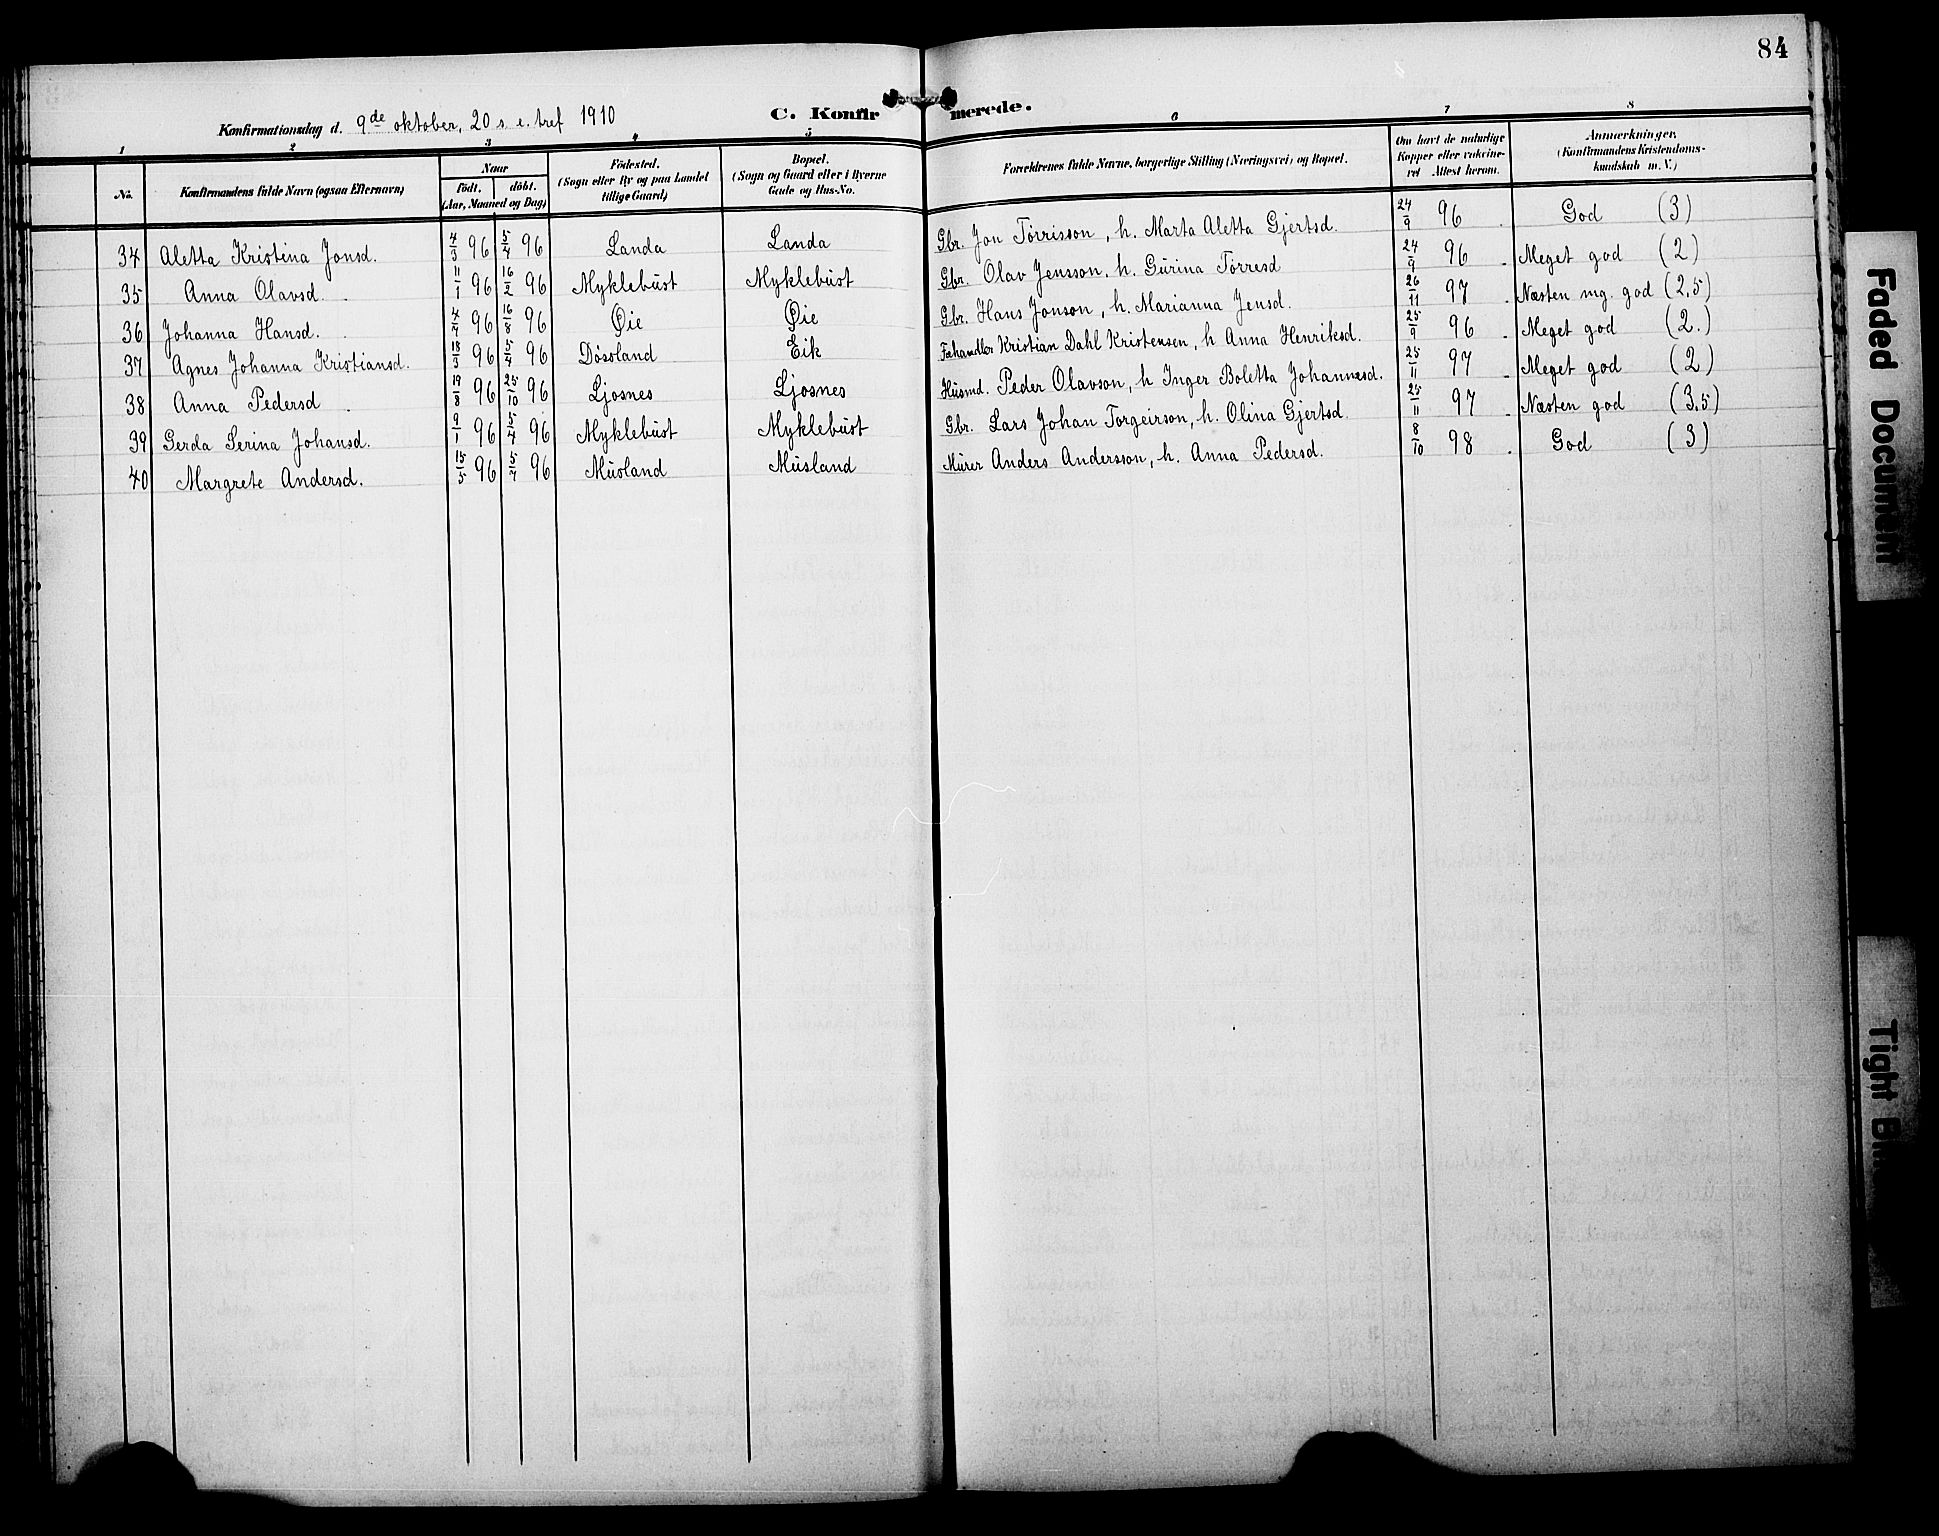 84
Konfirmationsdag d. 9de oktober, 20 s. e. tref 1910 C. Konfirmerede.
1 2 3 4 5 6 7 8
No. Konfirmandens fulde Navn (ogsaa Efternavn) Naar født. døbt. (Aar, Maaned og Dag) Fødested. (Sogn eller By og paa Landet tillige Gaard) Bopæl. (Sogn og Gaard eller i Byerne Gade og Hus-No. Forældrenes fulde Navne, borgerlige Stilling (Næringsvei) og Bopæl. Om havt de naturlige Kopper eller vakcineret Attest herom. Anmærkninger. (Konfirmandens Kristendomskundskab m. V.)
34 Aletta Kristina Jonsd. 4/3 96 5/4 96 Landa Landa Gbr. Jon Tørrisson, h. Marta Aletta Gjertsd. 24/9 96 God (3)
35 Anna Olavsd. 11/1 96 16/2 96 Myklebust Myklebust Gbr. Olav Jensson, h. Gurina Tørresd 24/9 96 Meget god (2)
36 Johanna Hansd. 96 16/8 96 Øie Øie Gbr. Hans Jonson, h. Marianna Jensd. 26/11 97 Næsten mg. god (2,5)
37 Agnes Johanna Kristiansd. 18/3 96 5/4 96 Døssland Eik Fæhandler Kristian Dahl Kristensen, h Anna Henriksd. 25/9 96 Meget god (2.)
38 Anna Pedersd 19/8 96 25/10 96 Ljosnes Ljosnes Husmd. Peder Olavson, h Inger Boletta Johannesd. 25/11 97 Meget god (2)
39 Gerda Serina Johansd. 9/1 96 5/4 96 Myklebust Myklebust Gbr. Lars Johan Torgeirson, h. Olina Gjertsd. 25/11 97 Næsten god (3,5)
40 Margrete Andersd. 15/5 96 96 Musland Musland Murer Anders Andersson, h. Anna Pedersd. 8/10 98 God (3)
Faded Document
Tight